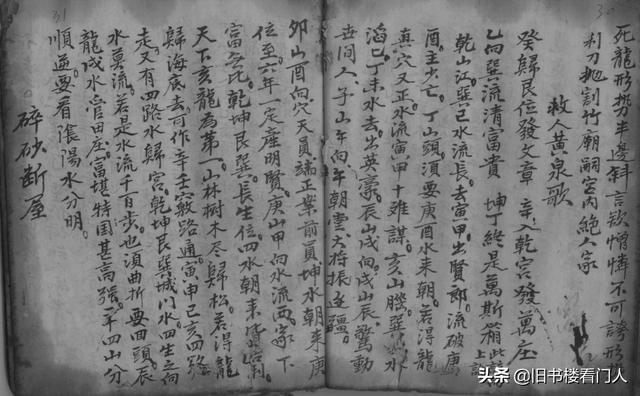 30
死龍形势半邊斜言欲憎憐不可誇形
利刀拋割竹廟嗣宮内絕人家
救人黃泉歌
癸歸艮位發文章 辛入乾宮發萬庄
乙向巽流清富貴 坤丁終是萬斯箱
乾山江巽巳水流長去寅甲出賢郎流破庚
酉主少亡丁山頭須要庚酉水来朝若得龍
真穴又正水流寅甲十难謀亥山騰巽水
滔巳丁未水去出英豪辰山戍向戍山辰驚動
世间人子山午向午朝雲大将振邊疆
31
卯山酉向穴天員端正案前員坤水朝来庚
位至六年一定產明賢庚山甲向水流两家下
富无比乾坤艮巽長生位四水朝来皆
天下亥龍為第一山林樹木尽歸松若得龍
歸海底去可作辛壬竅路通寅申巳亥四
走又有四路水歸宮乾坤艮巽城门水四生之向
水莫流若是水流千百步也須曲折要回頭辰
龍戍水管田庄富堪特国甚高強一年四山分
順逆要看陰陽水分明
碎砂断屋
头条 @旧书楼看门人